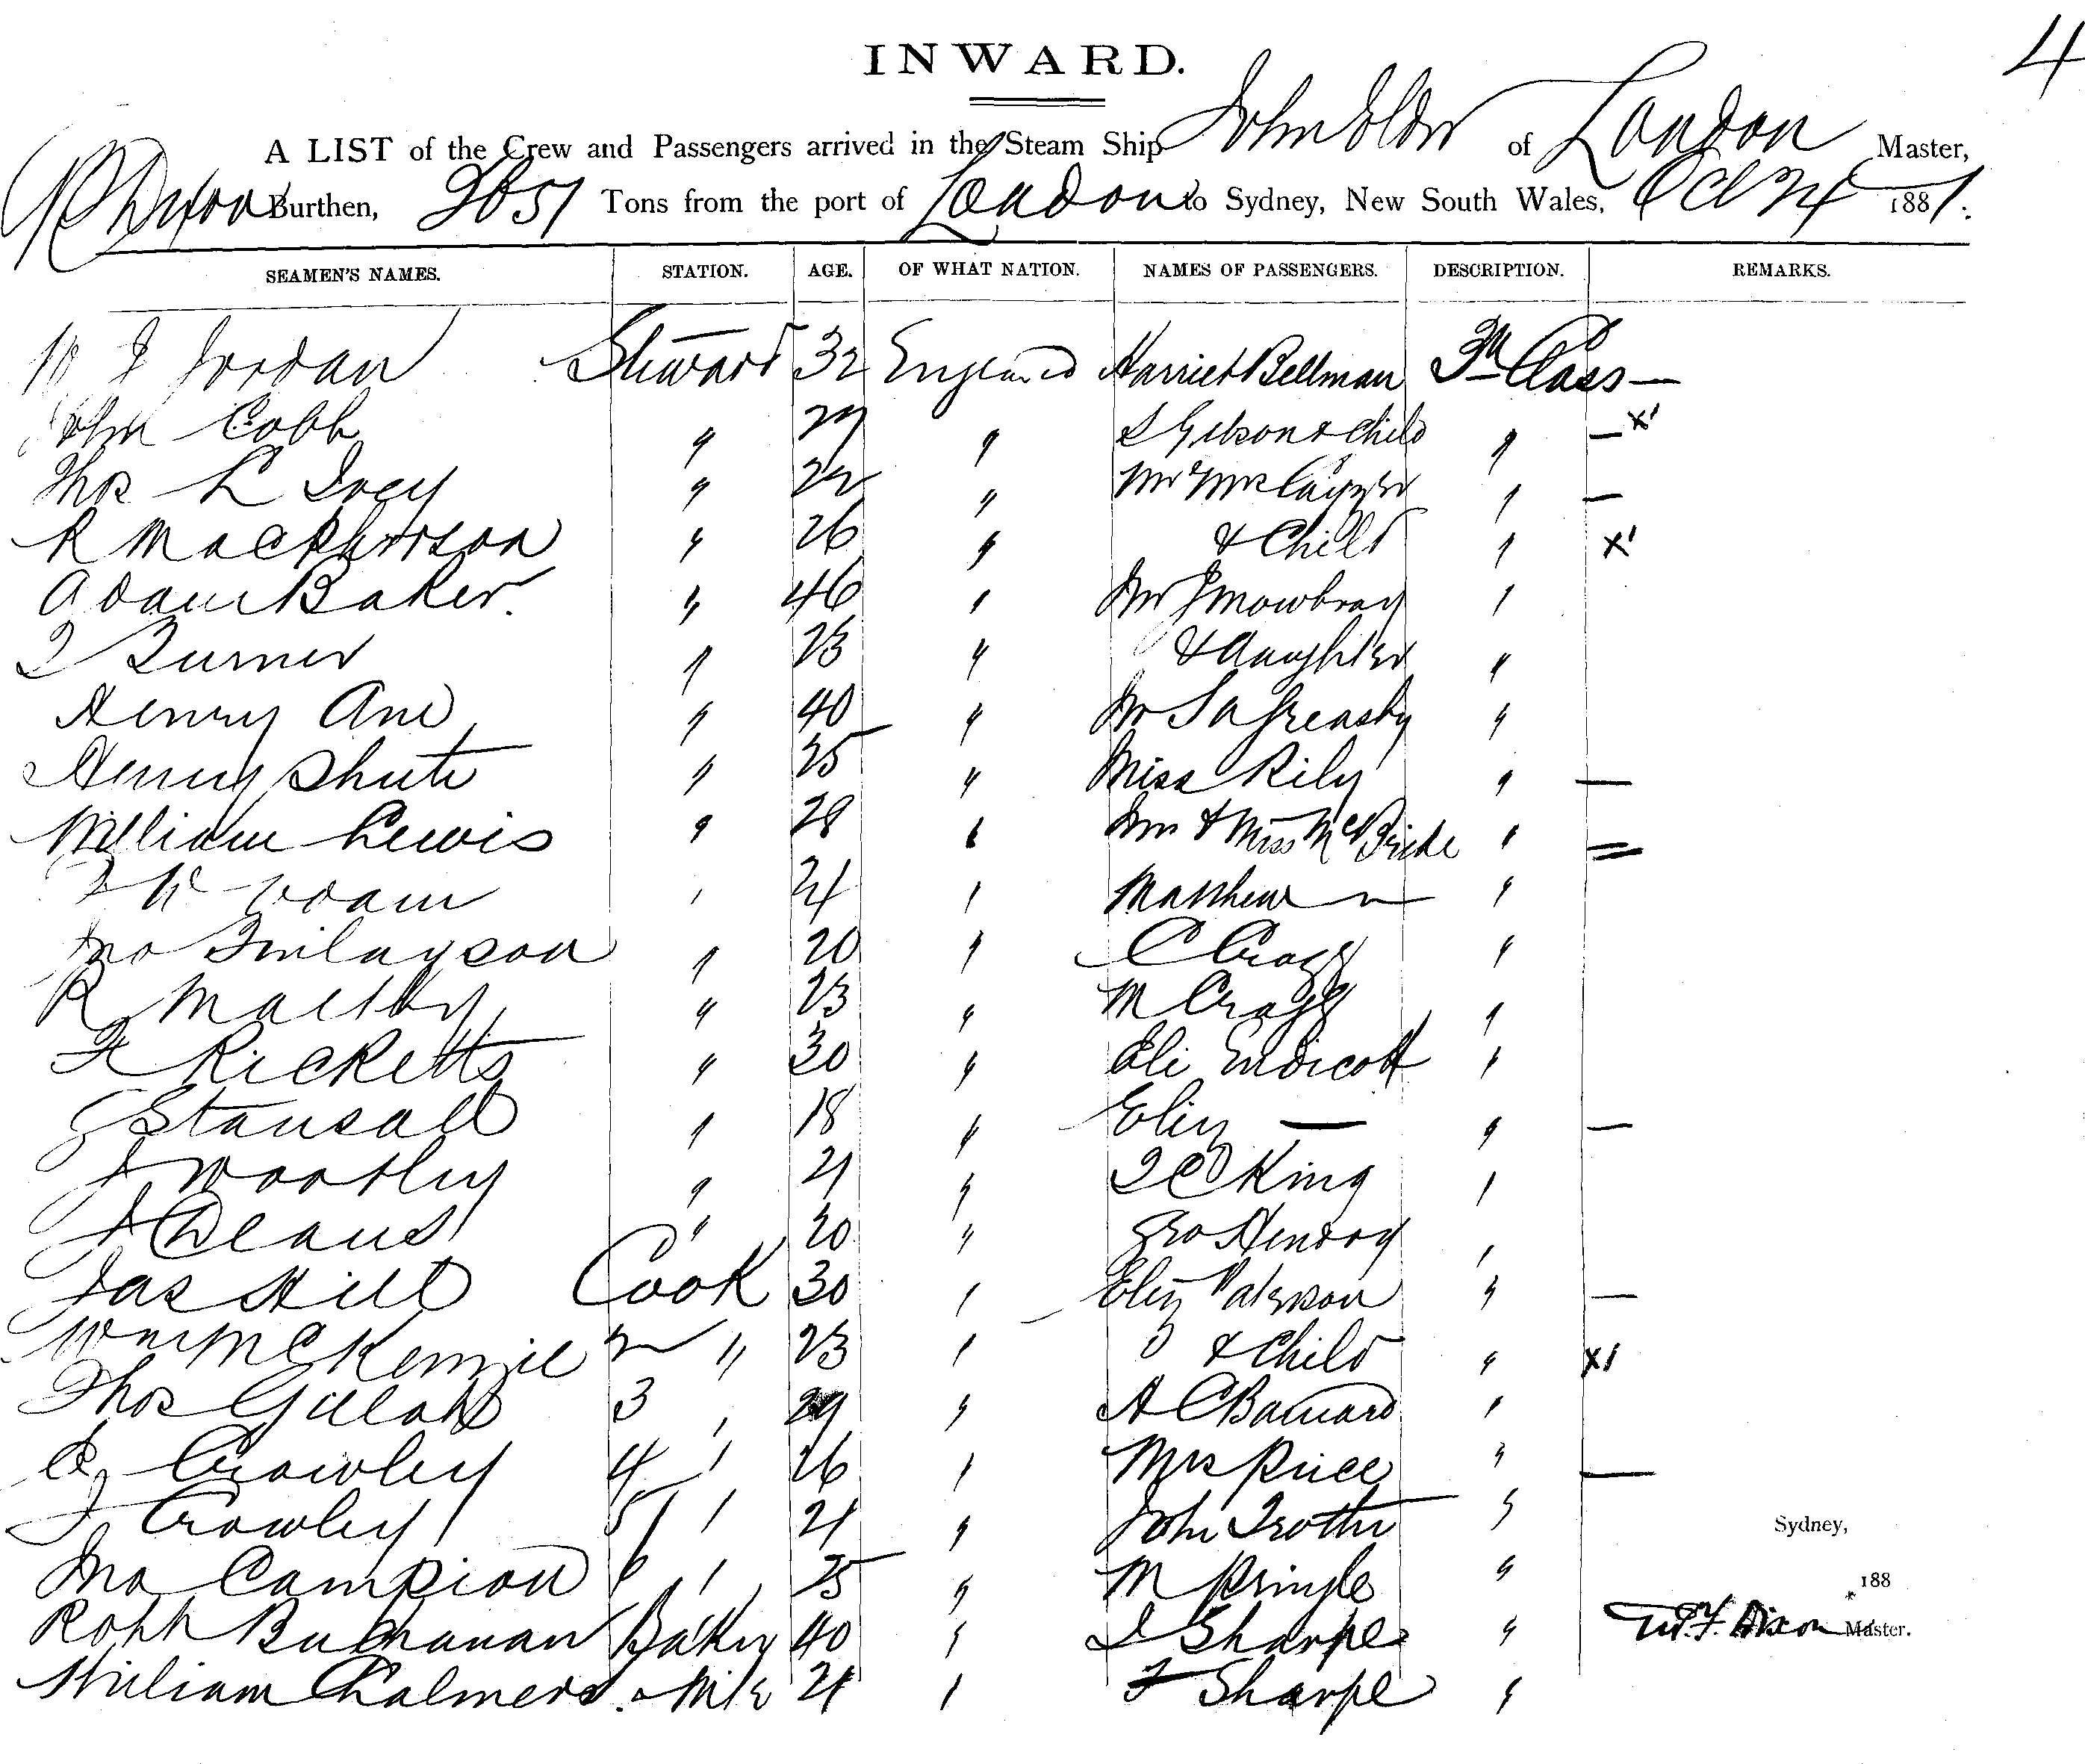 4
INWARD.
A LIST of the Crew and Passengers arrived in the Steam Ship John Elder of London Master,
Dixon Burthen, 2651 Tons from the port of London to Sydney, New South Wales, Oct 24 1881.
SEAMEN'S NAMES. STATION. AGE. OF WHAT NATION. NAMES OF PASSENGERS. DESCRIPTION. REMARKS.
W J Jordan Steward 32 England Harriet Bellman 3rd Class —
John Cobb " 27 " S Gibson & Child " — x1
Thos L Ivey " 22 " Mr & Mrs Cayzer " —
R Macpherson " 26 " & Child " x1
Adam Baker. " 46 " Mr J Mowbray "
T Turner " 23 " & daughter "
Henry Ane " 40 " Mr S A Greasby "
Henry Shute " 25 " Miss Rily " —
William Lewis " 28 " Mrs & Miss McBride " =
F W " 21 " Matthew — "
Jno Finlayson " 20 " C Cragg "
R Maltby " 23 " M Cragg "
F Ricketts " 30 " Eli Endicott "
G Stansall " 18 " Eliz — " —
J Wortley " 21 " T C King "
J Deans " 20 " Geo Hendry "
Jas Hill Cook 30 " Eliz Paterson " —
Wm McKenzie 2 " 23 " & Child " x1
Thos 3 " 29 " A C Barnard "
C Crowley 4 " 26 " Mrs Price " —
J Crowley 5 " 21 " John Trotter "
Jno Campion 6 " 25 " M Pringle "
Robt Buchanan Baker 40 " J Sharpe "
William Chalmers " Mte 21 " F Sharpe "
Sydney,
188
Wm. F. Dixon Master.